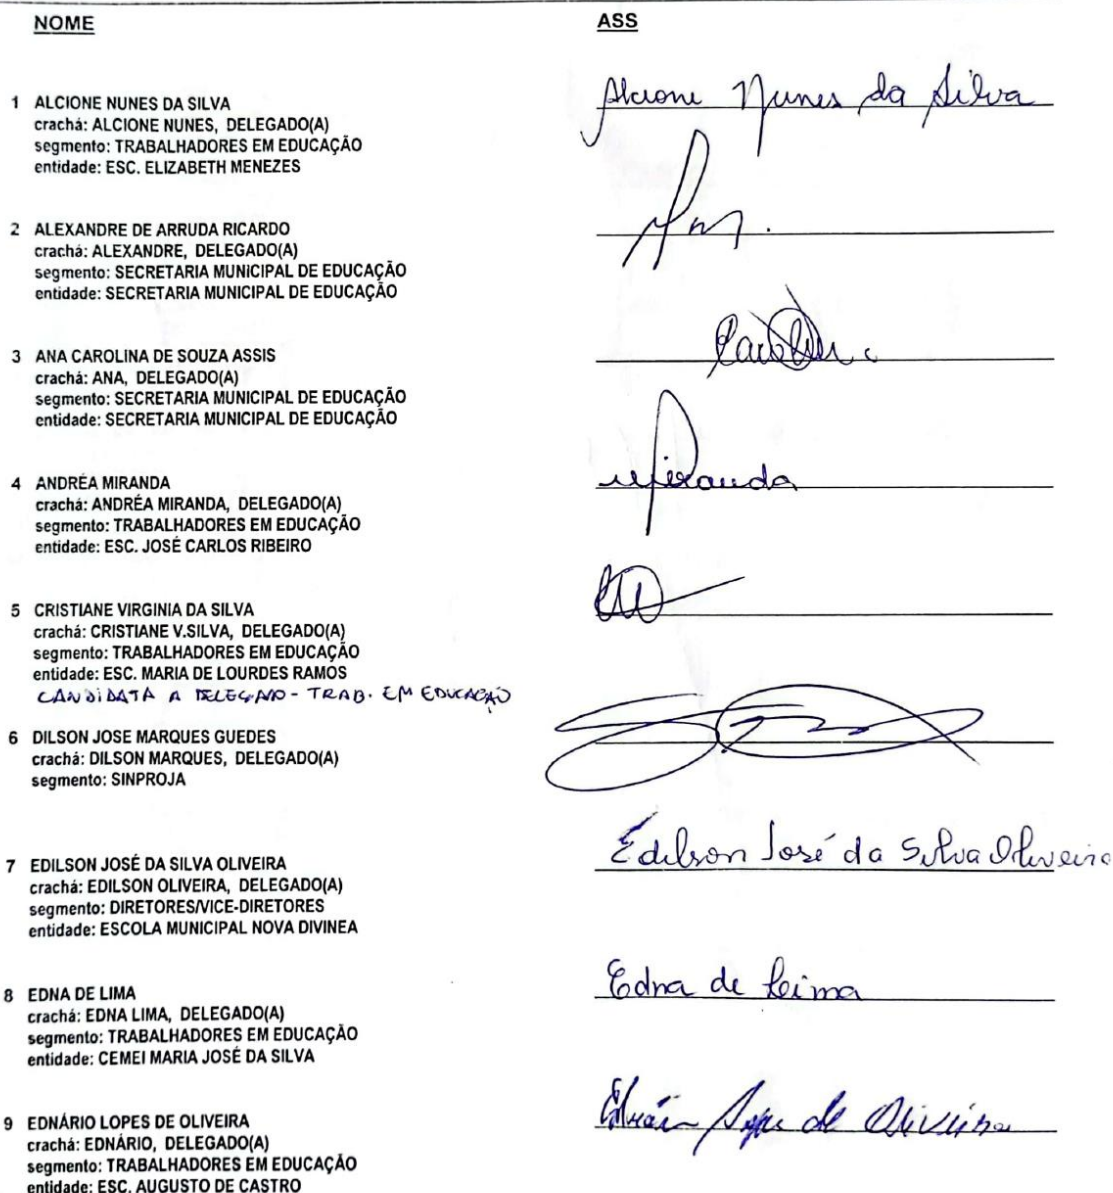 NOME ASS
1 ALCIONE NUNES DA SILVA Alcione Nunes da Silva
crachá: ALCIONE NUNES, DELEGADO(A)
segmento: TRABALHADORES EM EDUCAÇÃO
entidade: ESC. ELIZABETH MENEZES
2 ALEXANDRE DE ARRUDA RICARDO
crachá: ALEXANDRE, DELEGADO(A)
segmento: SECRETARIA MUNICIPAL DE EDUCAÇÃO
entidade: SECRETARIA MUNICIPAL DE EDUCAÇÃO
3 ANA CAROLINA DE SOUZA ASSIS
crachá: ANA, DELEGADO(A)
segmento: SECRETARIA MUNICIPAL DE EDUCAÇÃO
entidade: SECRETARIA MUNICIPAL DE EDUCAÇÃO
4 ANDRÉA MIRANDA Miranda
crachá: ANDRÉA MIRANDA, DELEGADO(A)
segmento: TRABALHADORES EM EDUCAÇÃO
entidade: ESC. JOSÉ CARLOS RIBEIRO
5 CRISTIANE VIRGINIA DA SILVA
crachá: CRISTIANE V.SILVA, DELEGADO(A)
segmento: TRABALHADORES EM EDUCAÇÃO
entidade: ESC. MARIA DE LOURDES RAMOS
CANDIDATA A DELEGADO - TRAB. EM EDUCAÇÃO
6 DILSON JOSE MARQUES GUEDES
crachá: DILSON MARQUES, DELEGADO(A)
segmento: SINPROJA
7 EDILSON JOSÉ DA SILVA OLIVEIRA Edilson José da Silva Oliveira
crachá: EDILSON OLIVEIRA, DELEGADO(A)
segmento: DIRETORES/VICE-DIRETORES
entidade: ESCOLA MUNICIPAL NOVA DIVINEA
8 EDNA DE LIMA Edna de Lima
crachá: EDNA LIMA, DELEGADO(A)
segmento: TRABALHADORES EM EDUCAÇÃO
entidade: CEMEI MARIA JOSÉ DA SILVA
9 EDNÁRIO LOPES DE OLIVEIRA Ednário Lopes de Oliveira
crachá: EDNÁRIO, DELEGADO(A)
segmento: TRABALHADORES EM EDUCAÇÃO
entidade: ESC. AUGUSTO DE CASTRO